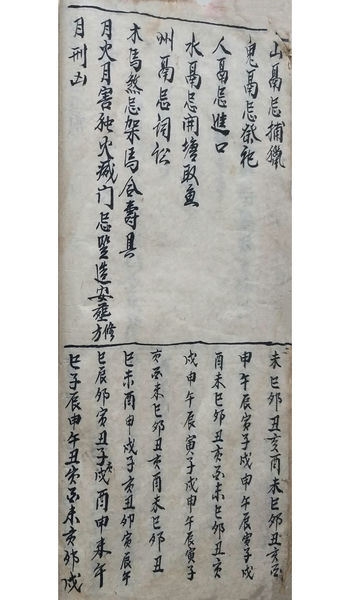 山鬲忌捕獵
鬼鬲忌祭祀
人鬲忌進口
水鬲忌開塘取魚
州鬲忌詞訟
木馬煞忌架馬合壽具
月火月害独火滅门忌豎造安葬修方
月刑凶
未巳卯丑亥酉未巳卯丑亥酉
申午辰寅子戌申午辰寅子戌
酉未巳卯丑亥酉未巳卯丑亥
戌申午辰寅子戌申午辰寅子
亥酉未巳卯丑亥酉未巳卯丑
巳未酉申戌子亥丑卯寅辰午
巳辰卯寅丑子戌亥酉申未午
巳子辰申午丑寅酉未亥卯戌